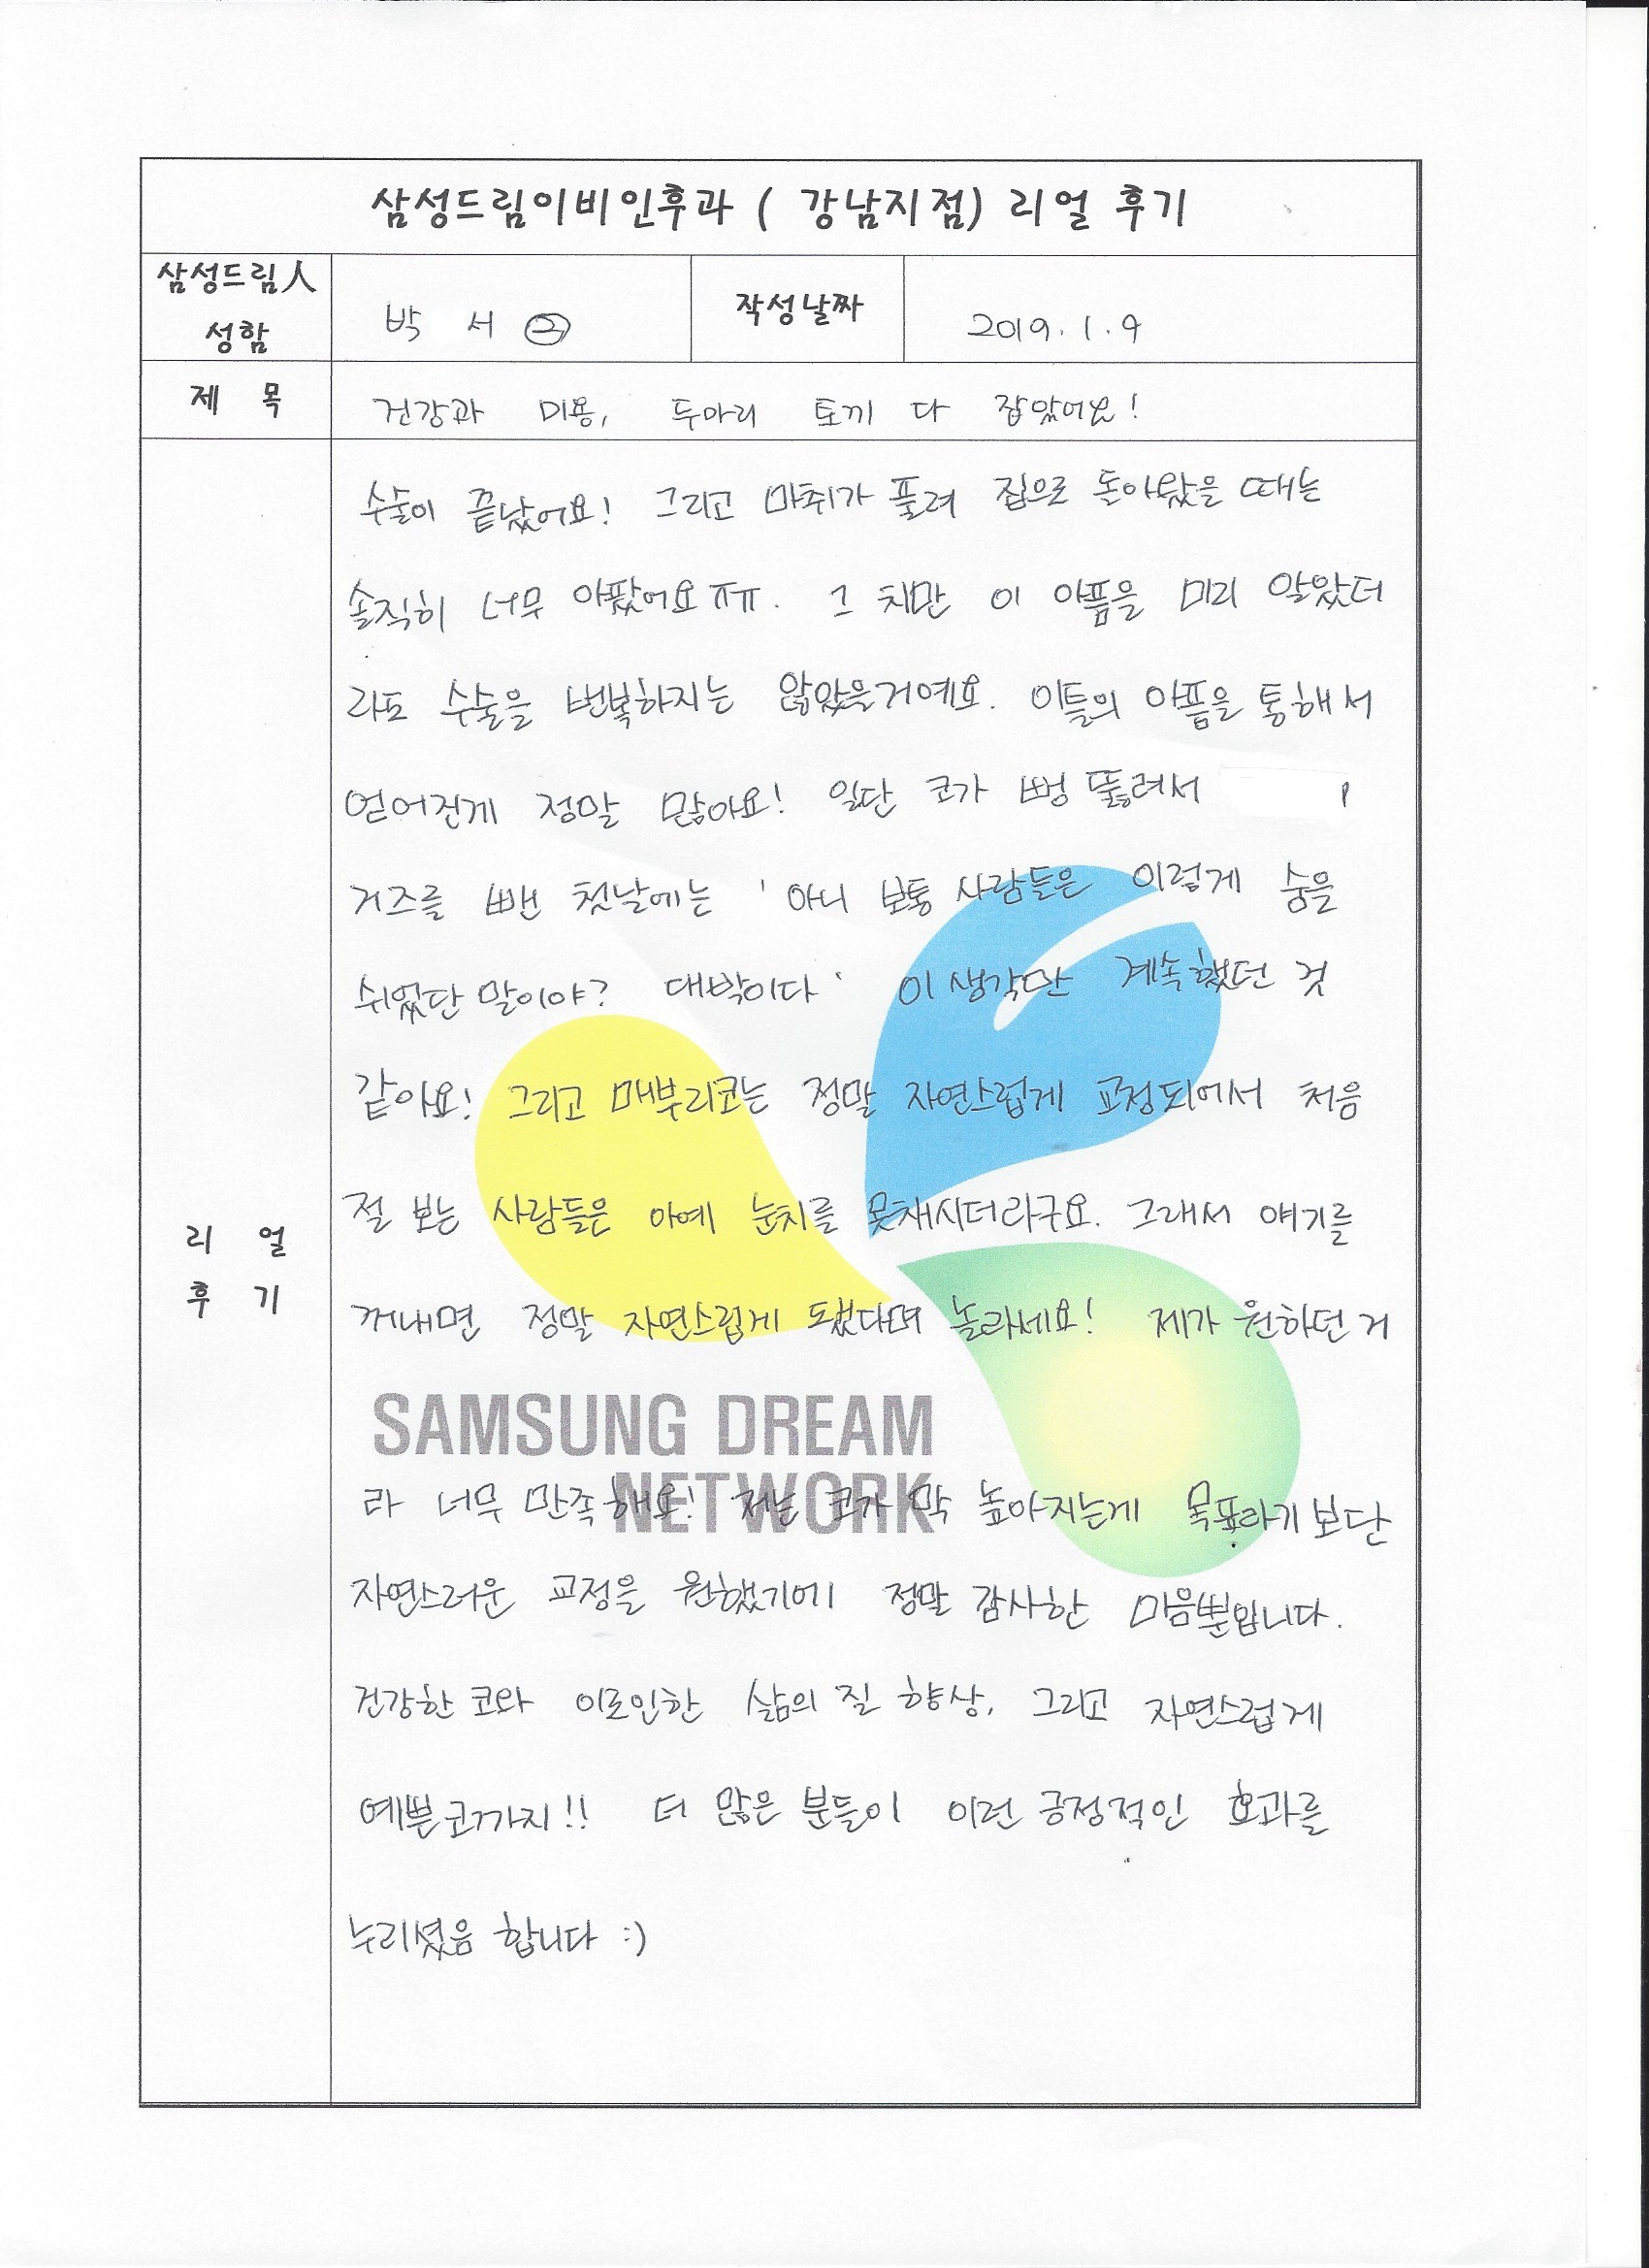 삼성드림이비인후과 ( 강남지점) 리얼 후기
삼성드림人
성함
박 서
작성날짜
2019. 1. 9
제 목
건강과 미용, 두마리 토끼 다 잡았어요!
수술이 끝났어요! 그리고 마취가 풀려 집으로 돌아왔을 때는
솔직히 너무 아팠어요ㅠㅠ. 그 치만 이 아픔을 미리 알았더
라도 수술을 번복하지는 않았을거예요. 이틀의 아픔을 통해서
얻어진게 정말 많아요! 일단 코가 뻥 뚫려서
거즈를 뺀 첫날에는 '아니 보통 사람들은 이렇게 숨을
쉬었단 말이야? 대박이다' 이 생각만 계속했던 것
같아요! 그리고 매부리코는 정말 자연스럽게 교정되어서 처음
절 보는 사람들은 아예 눈치를 못채시더라구요. 그래서 얘기를
꺼내면 정말 자연스럽게 됐다며 놀라세요! 제가 원하던 거
SAMSUNG DREAM
NETWORK
라 너무 만족해요! 저는 코가 막 높아지는게 목표라기 보단
자연스러운 교정을 원했기에 정말 감사한 마음뿐입니다.
건강한 코와 이로인한 삶의 질 향상, 그리고 자연스럽게
예쁜코까지!! 더 많은 분들이 이런 긍정적인 효과를
누리셨음 합니다 :)
리 얼
후 기